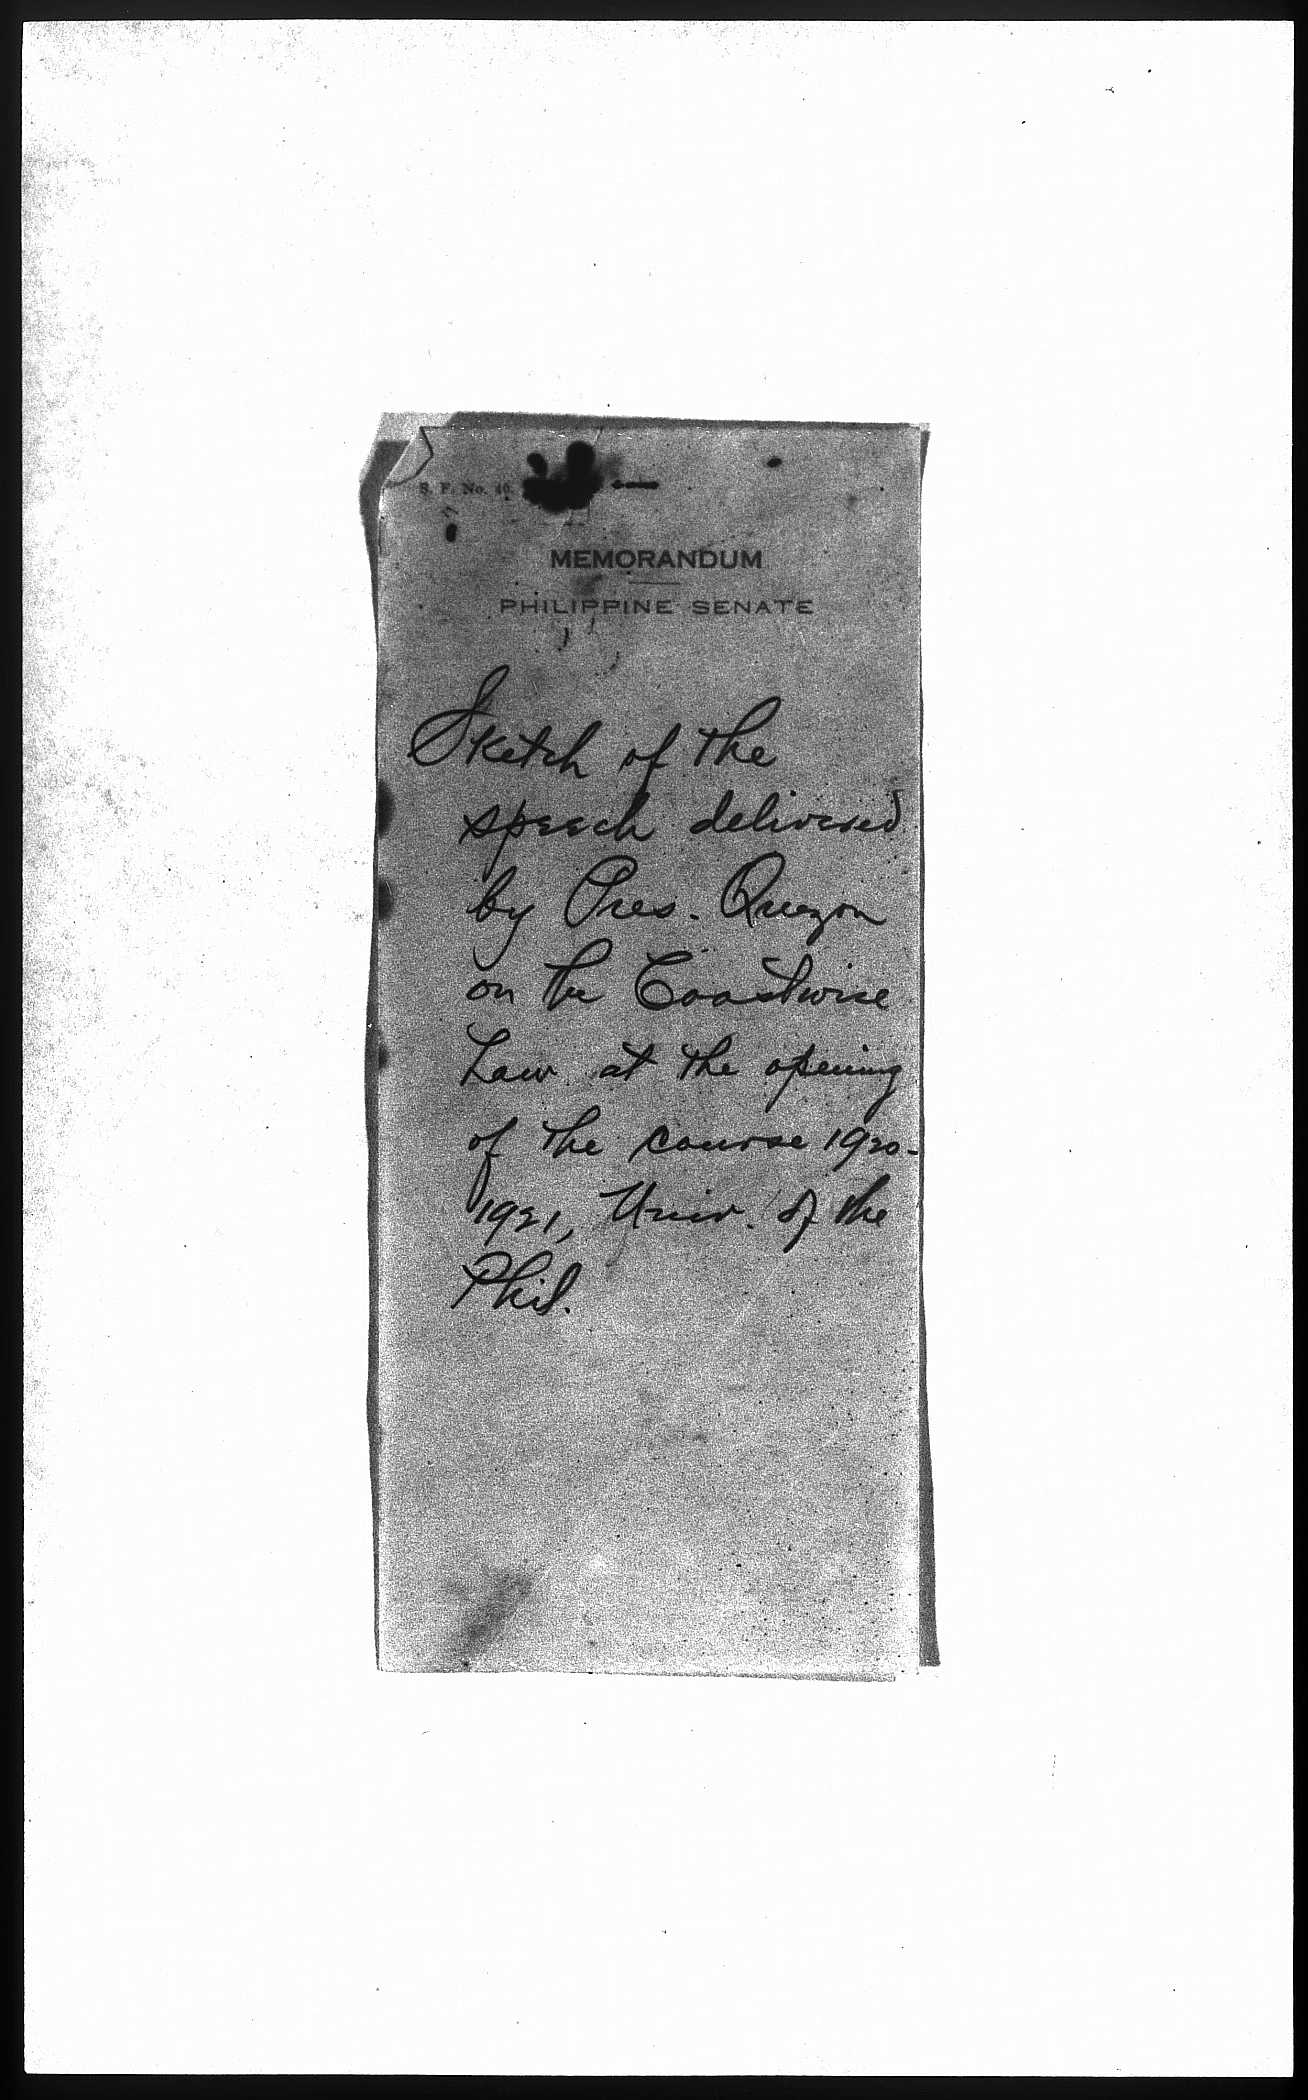 S. F. No. 40
MEMORANDUM
PHILIPPINE SENATE
Sketch of the
speech delivered
by Pres. Quezon
on the Coastwise
Law at the opening
of the course 1920-
1921, Univ. of the
Phil.